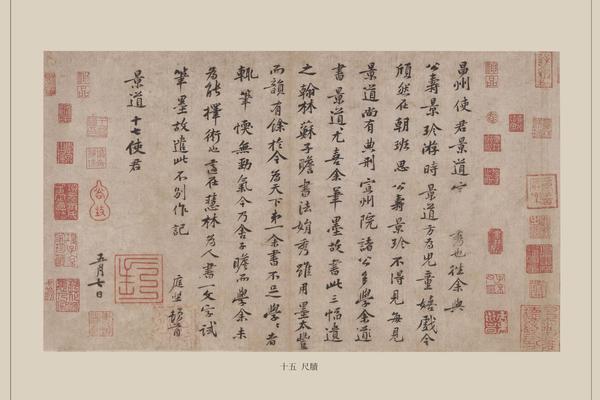 昌州使君景道宗秀也往余與
公壽景珍游時景道方為兒童嬉戲今
頎然在朝班思公壽景珍不得見每見
景道尚有典刑宣州院諸公多學余道
書景道尤喜余筆墨故書此三幅遺
之翰林蘇子瞻書法娟秀雖用墨太豐
而韻有餘於今為天下第一余書不足學學者
輒筆愞無勁氣今乃舍子瞻而學余未
為能擇術也適在慧林為人書一文字試
筆墨故遣此不別作記 庭堅頓首
景道十七使君
五月七日
十五 尺牘